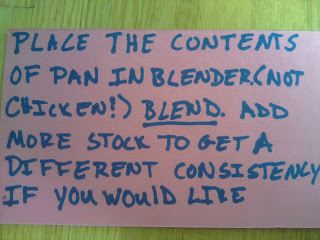 PLACE THE CONTENTS
OF PAN IN BLENDER(NOT
CHICKEN!) BLEND. ADD
MORE STOCK TO GET A
DIFFERENT CONSISTENCY
IF YOU WOULD LIKE